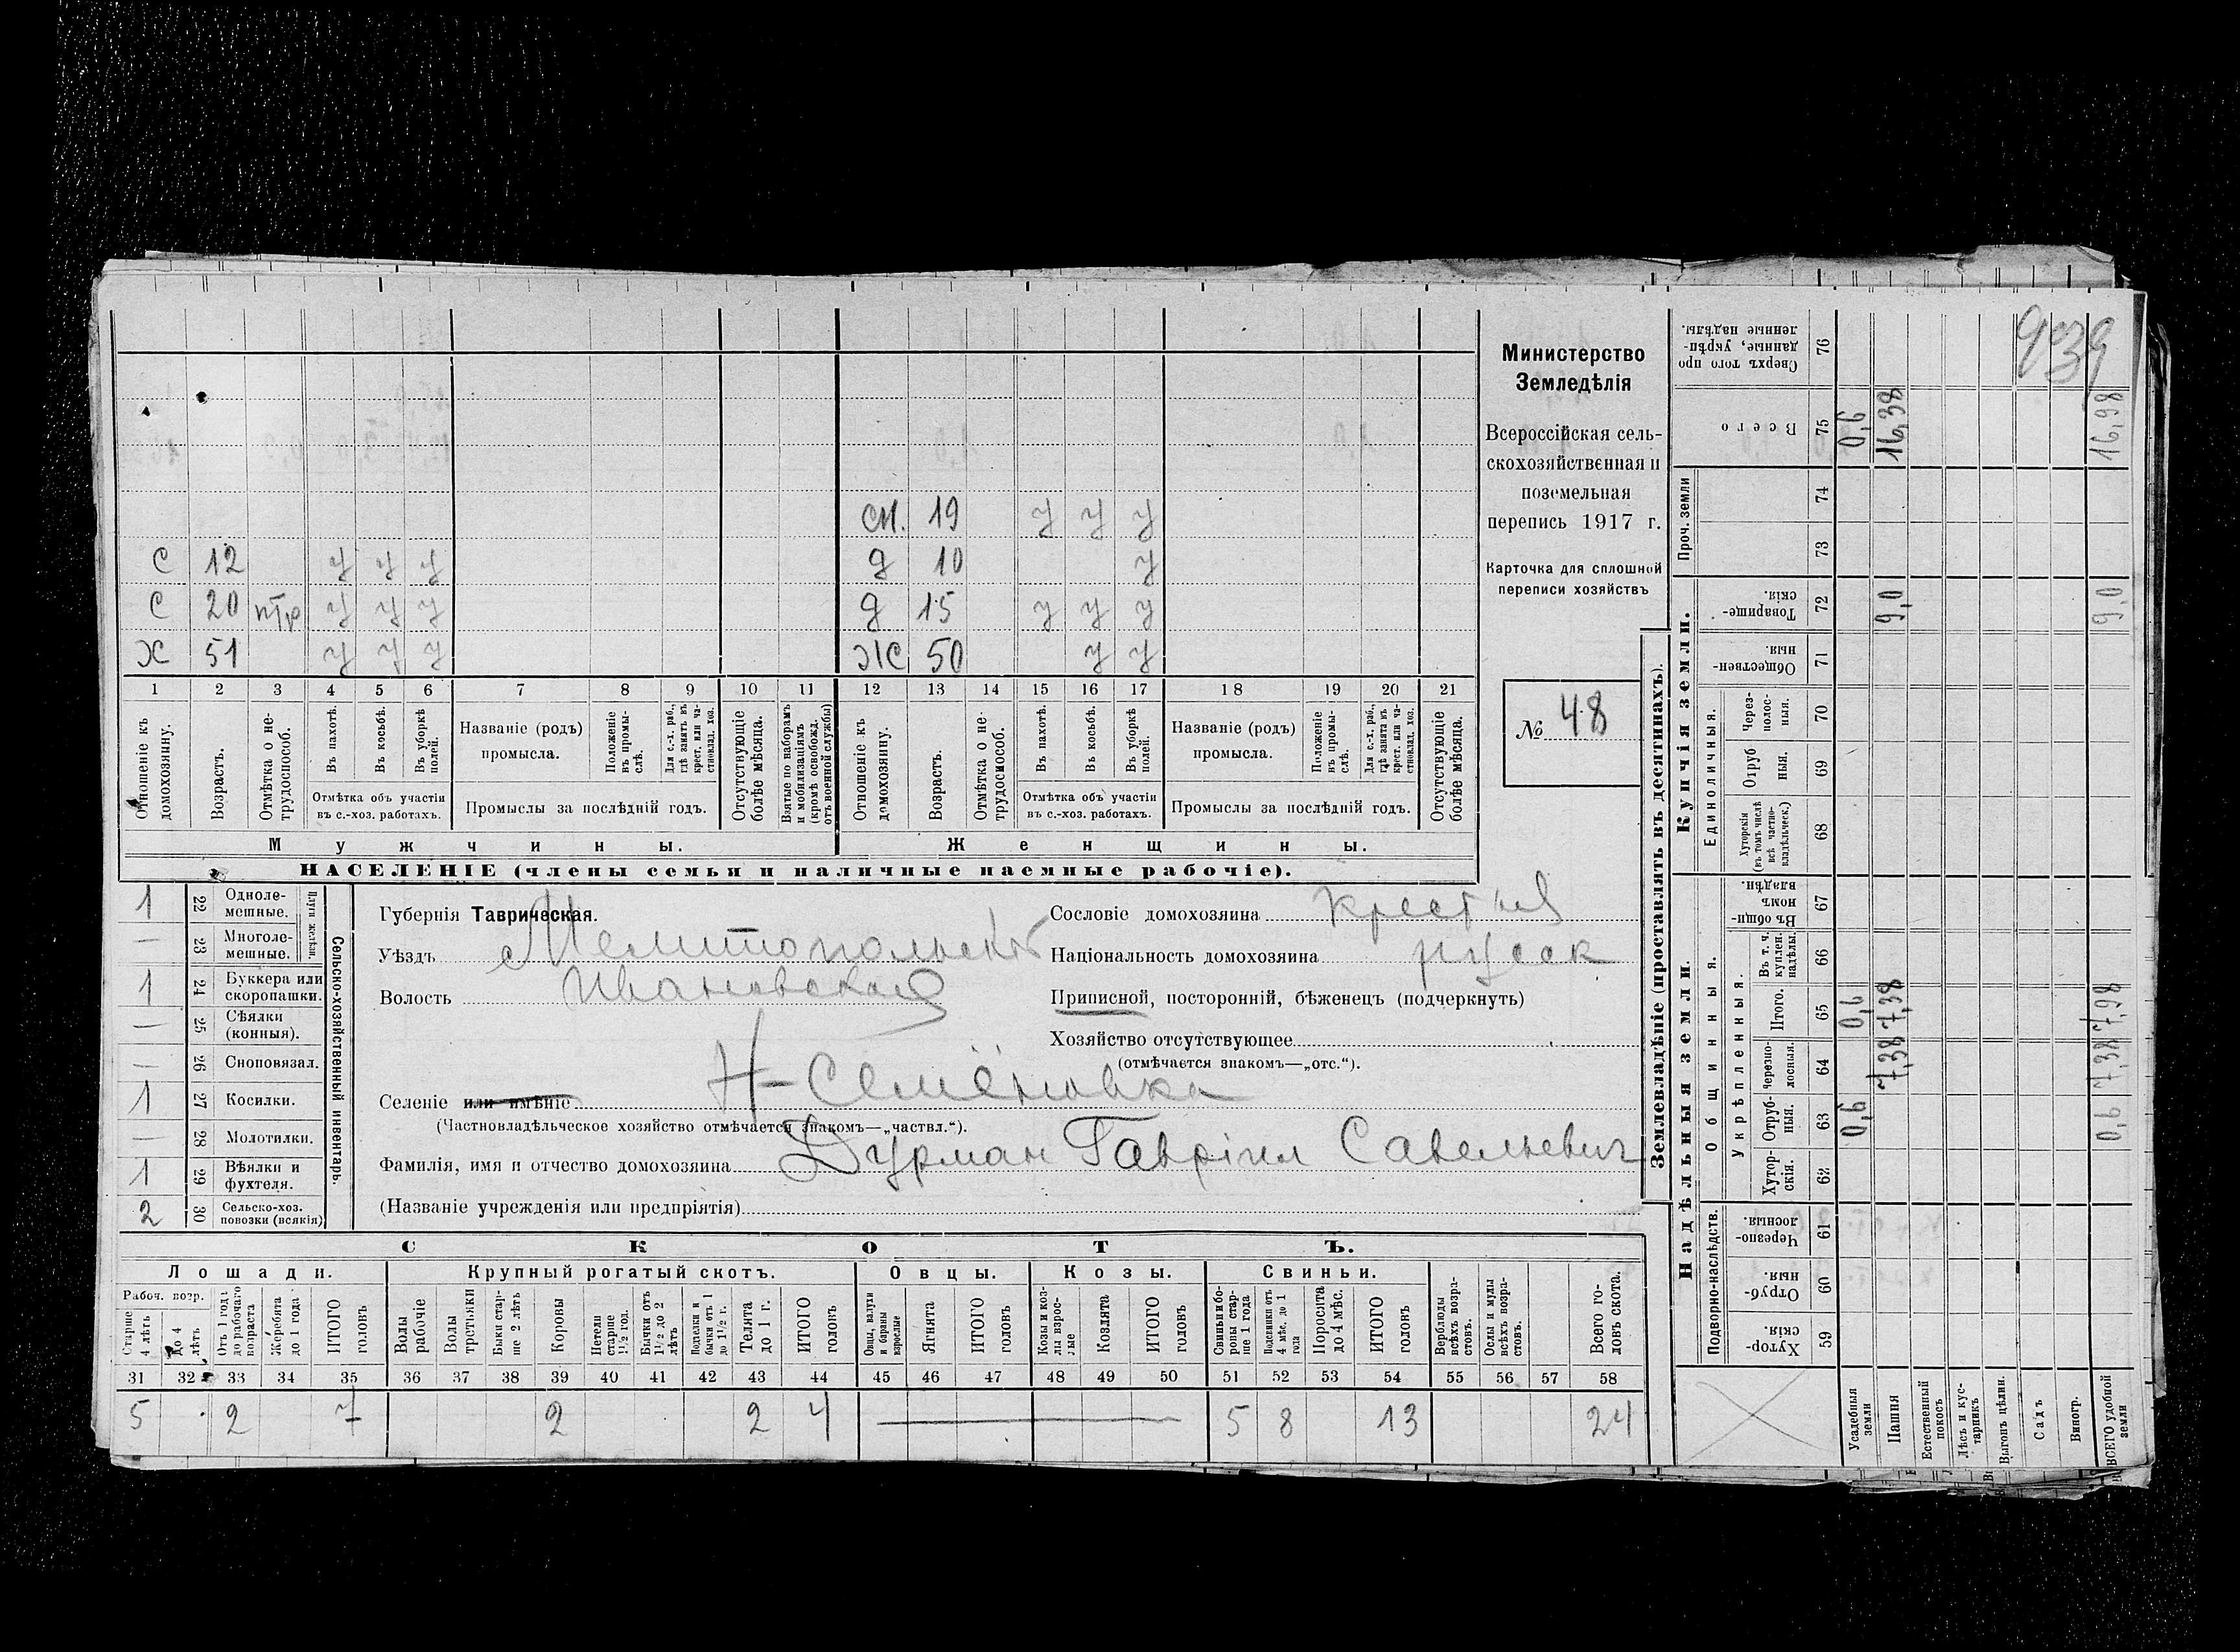 939
Министерство
Земледѣлія
Всероссійская сель-
скохозяйственная и
поземельная
перепись 1917 г.
Карточка для сплошной
переписи хозяйствъ
№ 48
см. 19 у у у
С 12 у у у д 10 у
С 20 у у у д 15 у у у
Х 51 у у у Ж 50 у у
1 2 3 4 5 6 7 8 9 10 11 12 13 14 15 16 17 18 19 20 21
Отношеніе къ домохозяину.
Возрастъ.
Отмѣтка о не-трудоспособ.
Въ пахотѣ.
Въ косьбѣ.
Въ уборкѣ полей.
Отмѣтка объ участіи
въ с.-хоз. работахъ.
Названіе (родъ)
промысла.
Положеніе въ промы-слѣ.
Для с.-х. раб., гдѣ занятъ въ крест. или ча-стновлад. хоз.
Промыслы за послѣдній годъ.
Отсутствующіе болѣе мѣсяца.
Взятые по наборамъ и мобилизаціямъ (кромѣ освобожд. отъ военной службы)
Отношеніе къ домохозяину.
Возрастъ.
Отмѣтка о не-трудоспособ.
Въ пахотѣ.
Въ косьбѣ.
Въ уборкѣ полей.
Отмѣтка объ участіи
въ с.-хоз. работахъ.
Названіе (родъ)
промысла.
Положеніе въ промы-слѣ.
Для с.-х. раб., гдѣ занята въ крест. или ча-стновлад. хоз.
Промыслы за послѣдній годъ.
Отсутствующіе болѣе мѣсяца.
Мужчины. Женщины.
НАСЕЛЕНІЕ (члены семьи и наличные наемные рабочіе).
Сельско-хозяйственный инвентарь.
Плуги желѣзн.
1 22 Одноле-мешные.
— 23 Многоле-мешные.
1 24 Буккера или скоропашки.
— 25 Сѣялки (конныя).
— 26 Сноповязал.
1 27 Косилки.
— 28 Молотилки.
1 29 Вѣялки и фухтеля.
2 30 Сельско-хоз. повозки (всякія)
Губернія Таврическая.
Уѣздъ Мелитопольскій
Волость Ивановская
Сословіе домохозяина
Національность домохозяина русск
Приписной, посторонній, бѣженецъ (подчеркнуть)
Хозяйство отсутствующее
(отмѣчается знакомъ—„отс.“).
Селеніе или имѣніе Н-Семёновка
(Частновладѣльческое хозяйство отмѣчается знакомъ—„частвл.“).
Фамилія, имя и отчество домохозяина Дурман Гавріил Савельевич
(Названіе учрежденія или предпріятія)
СКОТЪ.
Лошади. Крупный рогатый скотъ. Овцы. Козы. Свиньи.
Рабоч. возр.
Старше 4 лѣтъ
до 4 лѣтъ
Отъ 1 года до рабочаго возраста
Жеребята до 1 года
ИТОГО головъ
Волы рабочіе
Волы третьяки
Быки стар-ше 2 лѣтъ
Коровы
Нетели старше 1½ год.
Бычки отъ 1½ до 2 лѣтъ
Подтелки и бычки отъ 1 до 1½ г.
Телята до 1 г.
ИТОГО головъ
Овцы, валухи и бараны взрослые
Ягнята
ИТОГО головъ
Козы и коз-лы взрос-лые
Козлята
ИТОГО головъ
Свиньи и бо-ровы стар-ше 1 года
Подсвинки отъ 4 мѣс. до 1 года
Поросята до 4 мѣс.
ИТОГО головъ
Верблюды всѣхъ возра-стовъ.
Ослы и мулы всѣхъ возра-стовъ.
Всего го-ловъ скота.
31 32 33 34 35 36 37 38 39 40 41 42 43 44 45 46 47 48 49 50 51 52 53 54 55 56 57 58
5 2 7 2 2 4 — 5 8 13 24
Землевладѣніе (проставлять въ десятинахъ).
Надѣльныя земли. Купчія земли.
Подворно-наслѣдств.
Общинныя.
Укрѣпленныя.
Единоличныя.
Проч. земли
Хутор-скія. 59
Отруб-ныя 60
Черезпо-лосныя. 61
Хутор-скія. 62
Отруб-ныя. 63
Черезпо-лосныя. 64
Итого. 65
Въ т. ч. куплен. надѣлы. 66
Въ общи-номъ владѣн. 67
Хуторскія (въ томъ числѣ всѣ частно-владѣльческ.) 68
Отруб ныя. 69
Через-полос-ныя. 70
Обществен-ныя. 71
Товарище-скія. 72
73
74
Всего 75
Сверхъ того про данные, укрѣп-ленные надѣлы. 76
Усадебныя земли 0,6 0,6 0,6
Пашня 7,38 7,38 9,0 16,38
Естественный покосъ
Лѣсъ и кус-тарникъ
Выгонъ цѣлин.
Садъ
Виногр.
ВСЕГО удобной земли 0,6 7,38 7,98 9,0 16,98